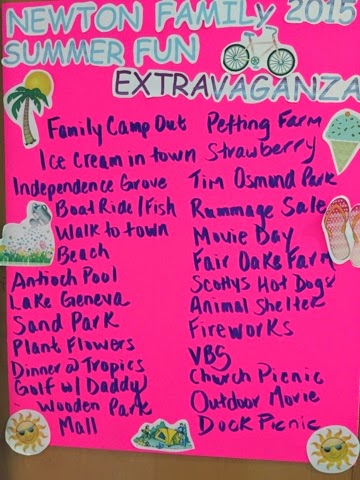 NEWTON FAMILY 2015
SUMMER FUN
EXTRAVAGANZA
Family Camp Out
Ice Cream in town
Independence Grove
Boat Ride/Fish
Walk to town
Beach
Antioch Pool
Lake Geneva
Sand Park
Plant Flowers
Dinner @ Tropics
Golf w/ Daddy
Wooden Park
Mall
Petting Farm
Strawberry
Tim Osmond Park
Rummage Sale
Movie Day
Fair Oaks Farm
Scottys Hot Dogs
Animal Shelter
Fireworks
VBS
Church Picnic
Outdoor Movie
Dock Picnic